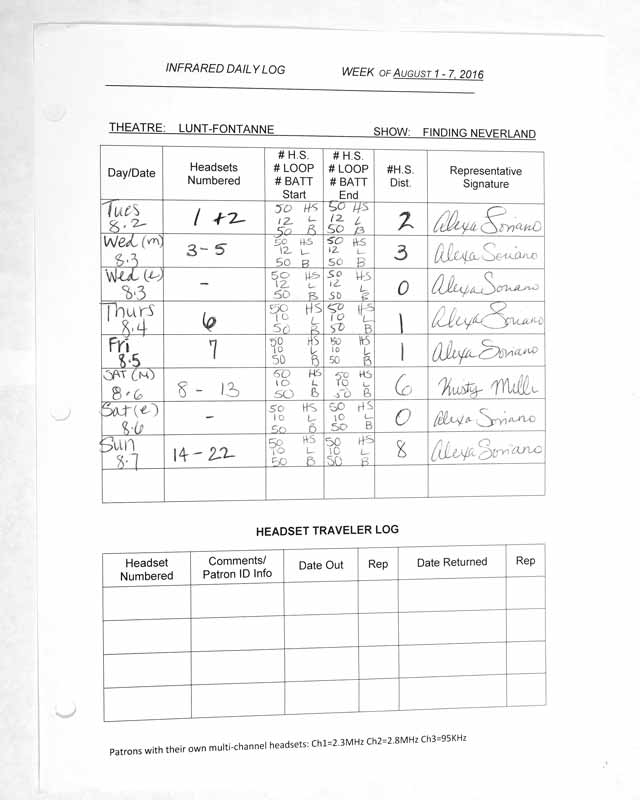 INFRARED DAILY LOG WEEK OF AUGUST 1 - 7, 2016
THEATRE: LUNT-FONTANNE SHOW: FINDING NEVERLAND
Day/Date Headsets Numbered # H.S. # LOOP # BATT Start # H.S. # LOOP # BATT End #H.S. Dist. Representative Signature
Tues 8.2 1 +2 50 HS 12 L 50 B 50 HS 12 L 50 B 2 Alexa Soriano
Wed (m) 8.3 3-5 50 HS 12 L 50 B 50 HS 12 L 50 B 3 Alexa Soriano
Wed (e) 8.3 - 50 HS 12 L 50 B 50 HS 12 L 50 B 0 Alexa Soriano
Thurs 8.4 6 50 HS 10 L 50 B 50 HS 10 L 50 B 1 Alexa Soriano
Fri 8.5 7 50 HS 10 L 50 B 50 HS 10 L 50 B 1 Alexa Soriano
SAT (M) 8.6 8 - 13 50 HS 10 L 50 B 50 HS 10 L 50 B 6
Sat (e) 8.6 - 50 HS 10 L 50 B 50 HS 10 L 50 B 0 Alexa Soriano
Sun 8.7 14-22 50 HS 10 L 50 B 50 HS 10 L 50 B 8 Alexa Soriano
HEADSET TRAVELER LOG
Headset Numbered Comments/ Patron ID Info Date Out Rep Date Returned Rep
Patrons with their own multi-channel headsets: Ch1=2.3MHz Ch2=2.8MHz Ch3=95KHz